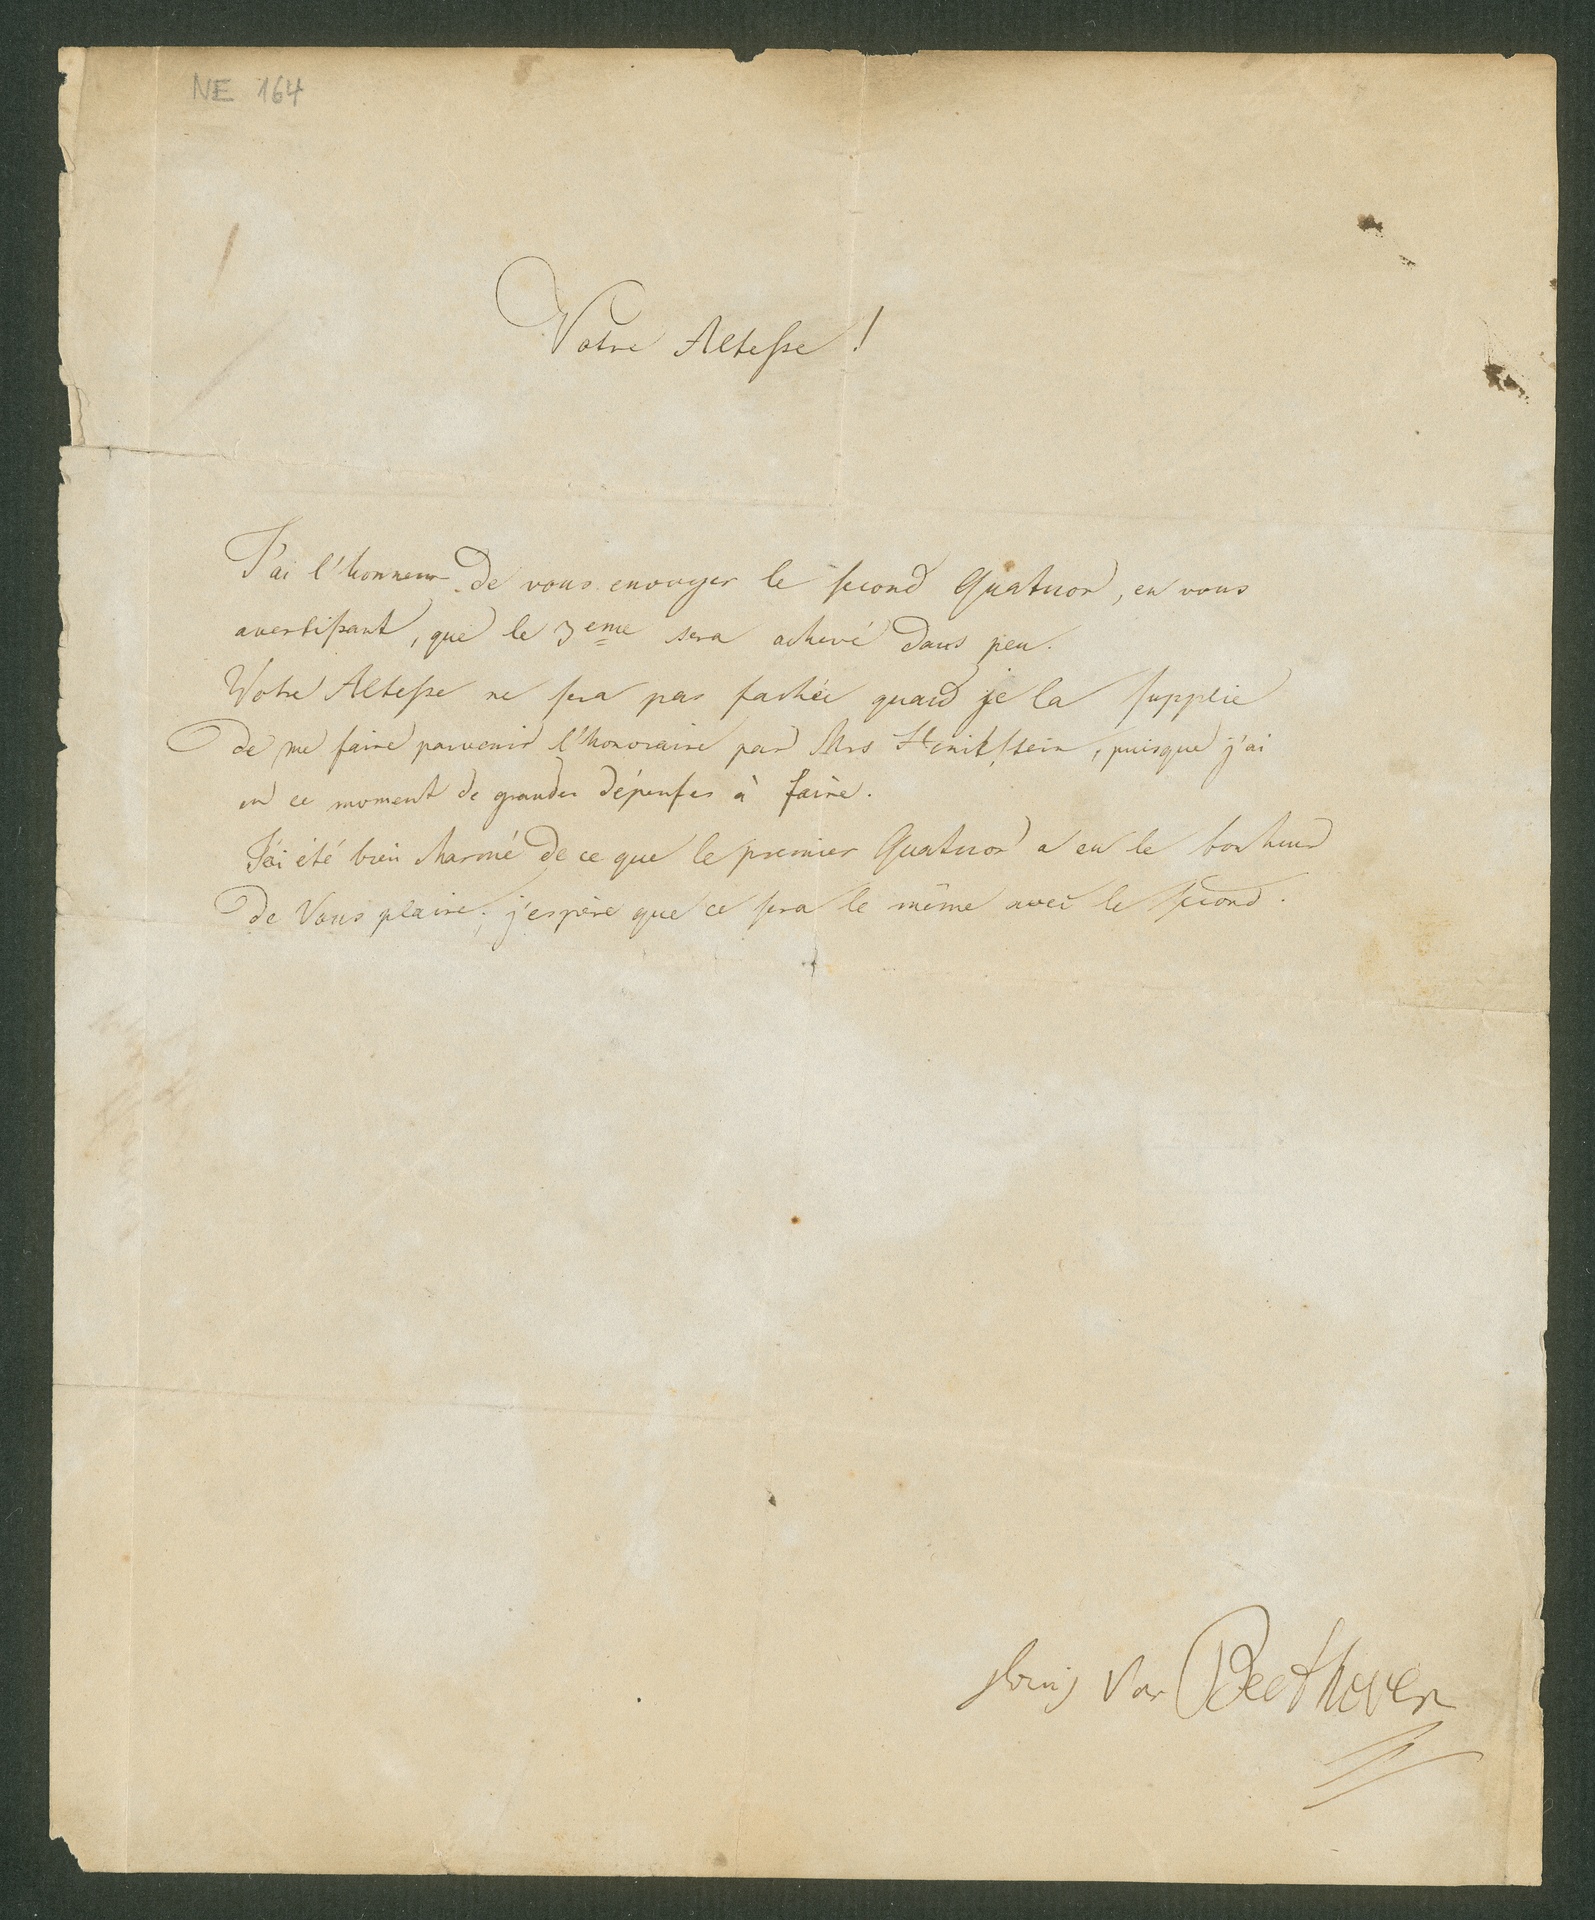 NE 164
Votre Altesse !
J'ai l'honneur de vous envoyer le second Quatuor, en vous
avertissant, que le 3eme sera achevé dans peu.
Votre Altesse ne sera pas fachée quand je la supplie
de me faire parvenir l'honoraire par Mrs Henikstein, puisque j'ai
en ce moment de grandes dépenses à faire.
J'ai été bien charmé de ce que le premier Quatuor a eu le bonheur
de Vous plaire; j'espère que ce sera le même avec le second.
Louis van Beethoven